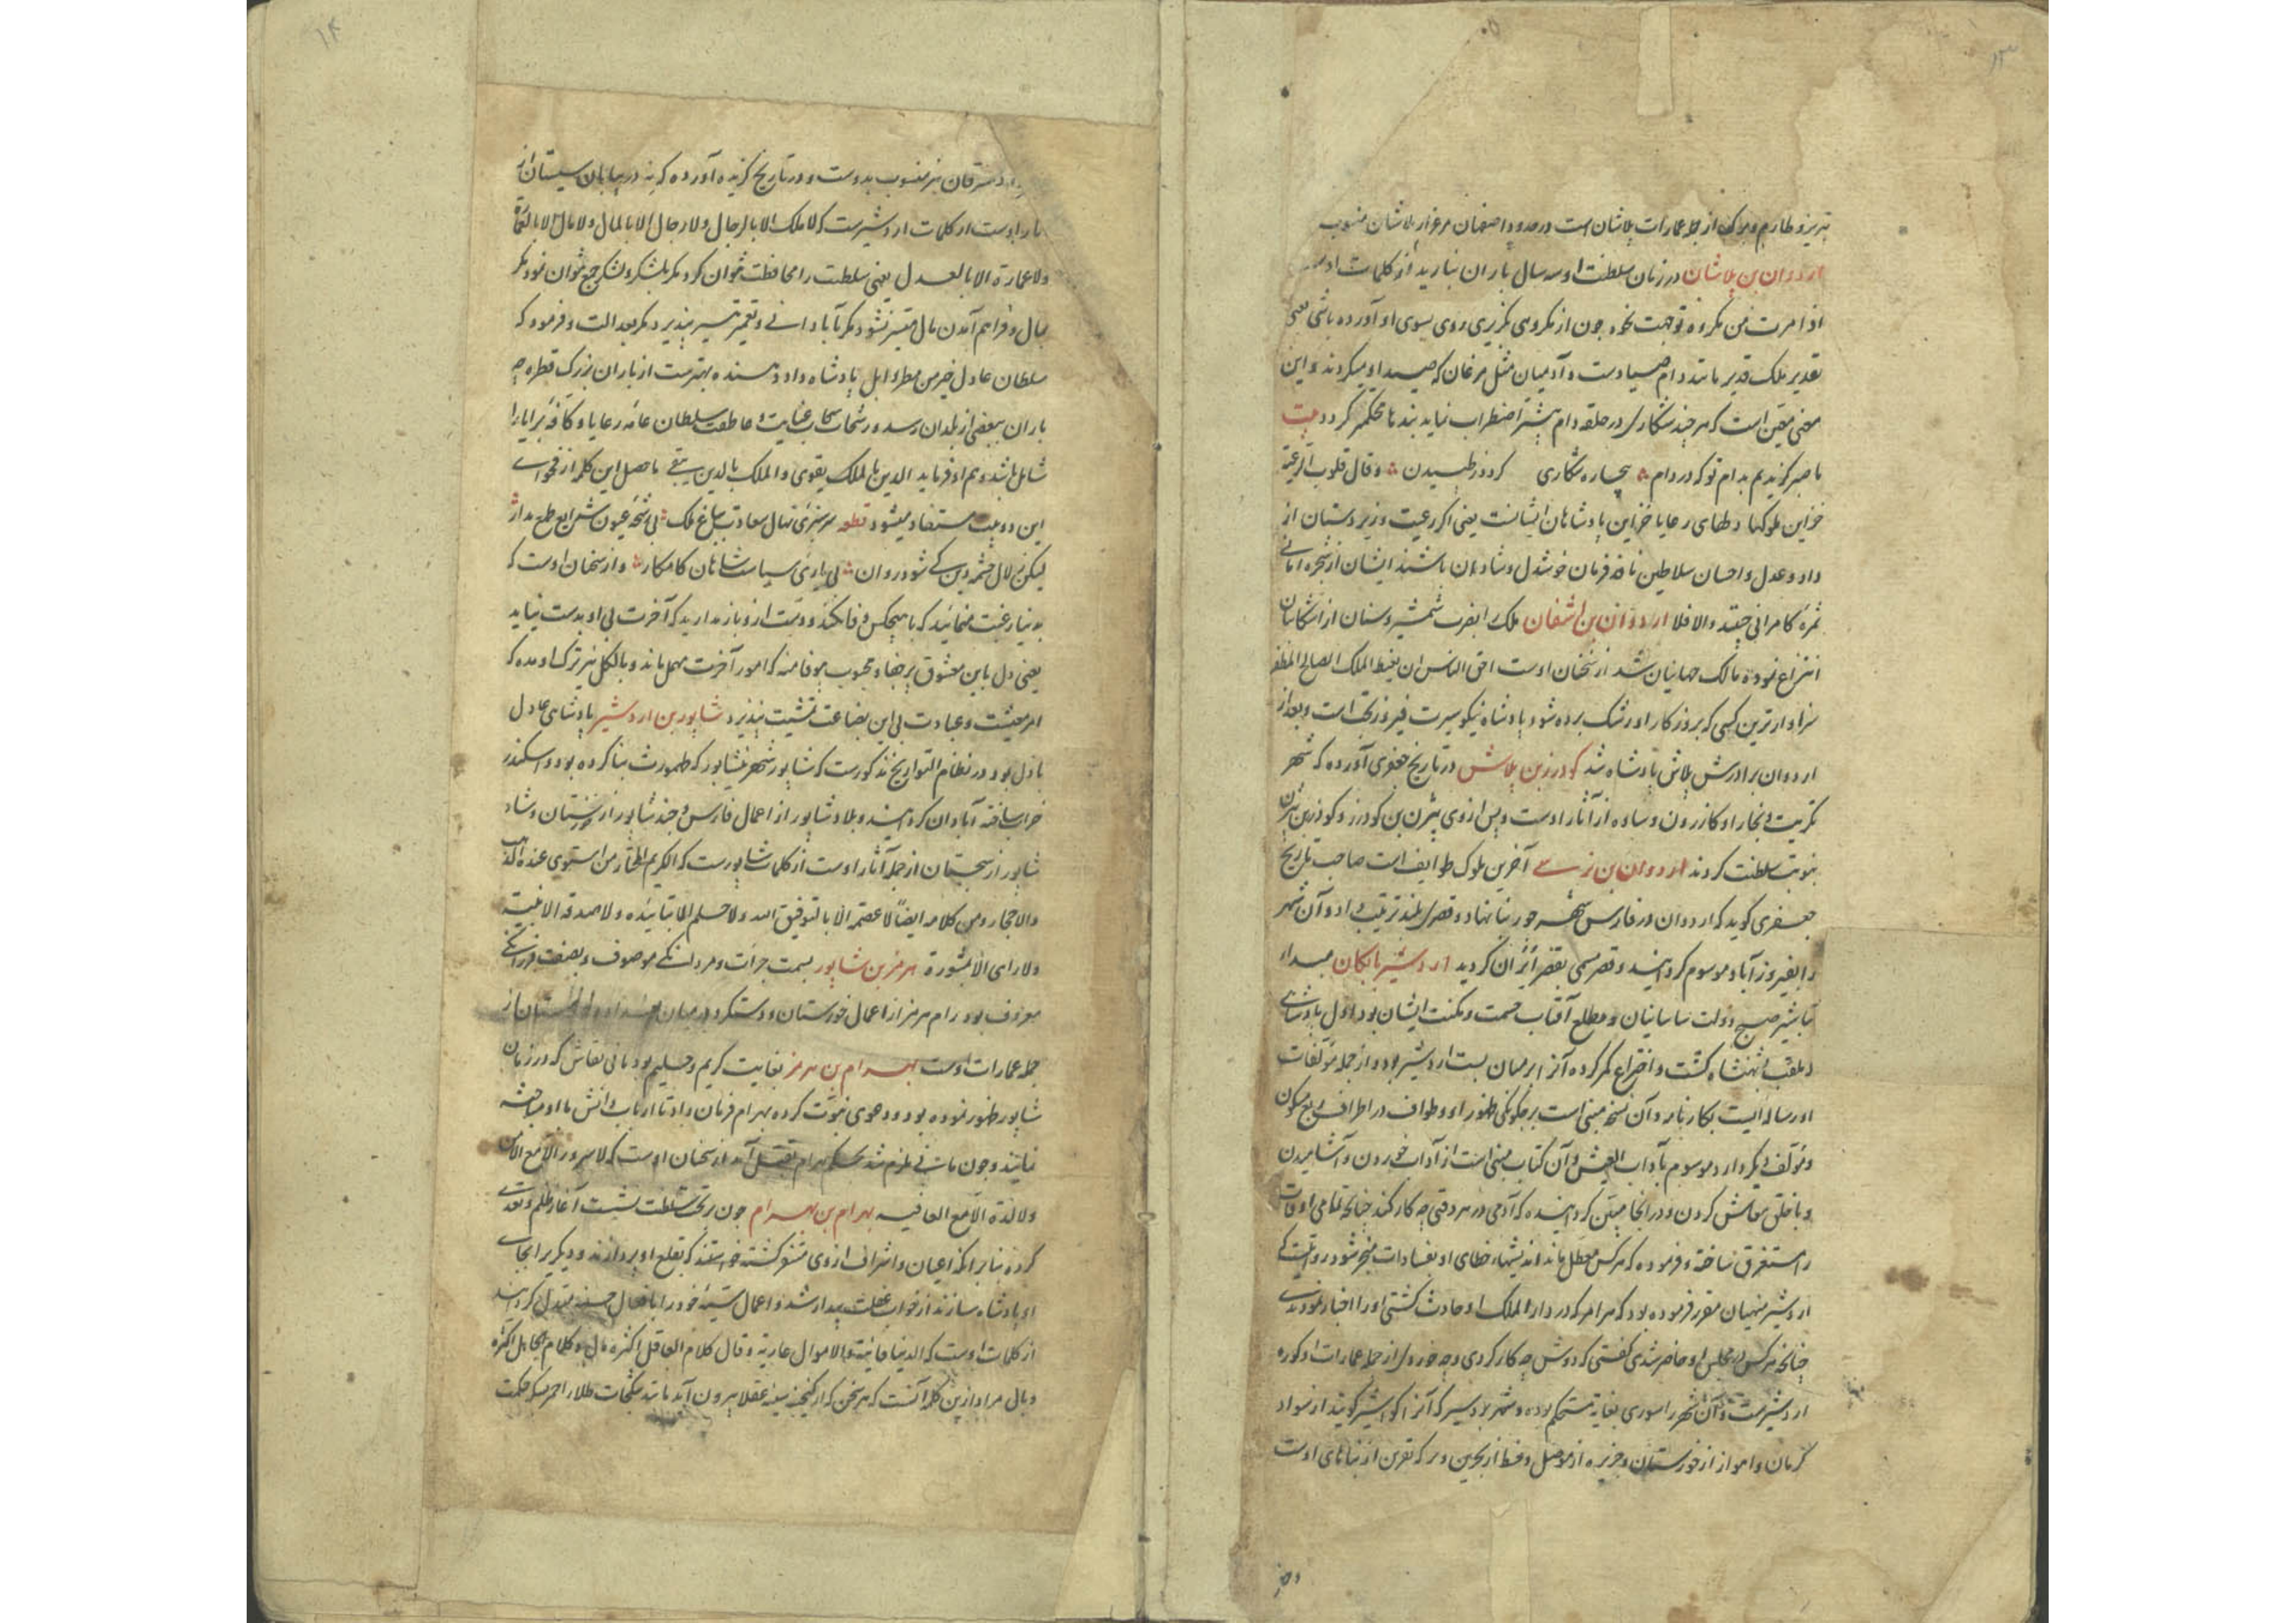 ۱۳
تبریز و طارم و موکان از جمله عمارات پلاشان است و در حدود اصفهان مرغزار پلاشان منسوب
اردوان بن پلاشان در زمان سلطنت او سه سال باران نبارید از کلمات اوست
اذا مرت من مکروه توجهت نحوه چون از مکروهی بگریزی روی بسوی او آورده باشی یعنی
تقدیر ملک قدیر مانند دام صیادست و آدمیان مثل مرغان که صید او میکردند و این
معنی متعین است که هر چند شکاری در حلقه دام بیشتر اضطراب نماید بندها محکمتر گردد بیت
ما صبر گزیدیم بدام تو که در دام بیچاره شکاری گردد ز طپیدن و قال قلوب الرعیة
خزاین ملوکها دلهای رعایا خزاین پادشاهان ایشانست یعنی اگر رعیت و زیردستان از
داد و عدل و احسان سلاطین نافذ فرمان خوشدل و شادمان باشند ایشان از شجره امانی
ثمره کامرانی چینند والا فلا اردوان بن اشغان ملک را بضرب شمشیر و سنان از اشکانیان
انتزاع نموده مالک جهانیان شد از سخنان اوست احق الناس ان یغبط الملک الصالح المظفر
سزاوارترین کسی که بروزکار او رشک برده شود پادشاه نیکو سیرت فیروز بختست و بعد از
اردوان برادرش پلاش پادشاه شد کودرز بن پلاش در تاریخ جعفری آورده که شهر
تکریت و نجار و کازرون و ساوه از آثار اوست و پس از وی بیژن بن کودرز و کودرز بن بیژن
بنوبت سلطنت کردند اردوان بن نرسی آخرین ملوک طوایف است صاحب تاریخ
جعفری کوید که اردوان در فارس شهر جور بنا نهاد و قصری بلند ترتیب داد و آن شهر
را بفیروزآباد موسوم کردانید و قصر مسمی بقصر ایران کردید اردشیر بابکان مبداء
تباشیر صبح دولت ساسانیان و مطلع آفتاب حشمت و مکنت ایشان بود اول پادشاهی
ملقب بشهنشاه کشت و اختراع کمر کرده آنرا بر میان بست اردشیر بود و از جمله مولفات
او رساله ایست بکارنامه و آن نسخه مبنی است بر چکونکی ظهور او و طواف در اطراف ربع مسکون
و مؤلف دیکر دارد موسوم بآداب العیش و آن کتاب مبنی است از آداب خوردن و آشامیدن
و با خلق معاش کردن و در انجا مبین کردانیده که آدمی در هر وقتی چه کار کند چنانچه تمامی اوقات
را مستغرق ساخته و فرموده که هر کس معطل ماند اندیشهاء خطای او بفسادات منجر شود
اردشیر منهیان مقرر فرموده بود که هر امر که در دار الملک او حادث کشتی او را اخبار نمودندی
چنانچه هر کس در مجلس او حاضر شدی کفتی که دوش چه کار کردی و چه خوردی از جمله عمارات او کوره
اردشیرست و آن شهر را سوری بغایة مستحکم بوده و شهر بردسیر که آنرا کواشیر کویند از سواد
کرمان و اهواز از خوزستان و جزیره از موصل و خط از بحرین و از بناهای اوست
۱۴
نیز منسوب بدوست و در تاریخ کزیده آورده که بند در بیابان سیستان از
آثار اوست از کلمات اردشیرست که لا ملک الا بالرجال و لا رجال الا بالمال و لا مال الا بالعمارة
و لا عمارة الا بالعدل یعنی سلطنت را محافظت نتوان کرد مکر بلشکر و لشکر جمع نتوان نمود مکر
بمال و فراهم آمدن مال میسر نشود مکر بآبادانی و تعمیر تیسیر نپذیرد مکر بعدالت و فرمود که
سلطان عادل خیر من مطر وابل پادشاه داد دهنده بهترست از باران بزرک قطره چه
باران ببعضی از بلدان رسد و رشحات سحاب عنایت و عاطفت سلطان عامه رعایا و کافه برایا را
شامل باشد و هم او فرماید الدین بالملک یقوی و الملک بالدین یبقی ماحصل این کلمه از فحوای
این دو بیت مستفاد میشود قطعه سرسبزی نهال سعادت بباغ ملک بی رشحه عیون شرایع طمع مدار
لیکن زلال چشمه دین کی شود روان بی یاری سیاست شاهان کامکار و از سخنان اوست که
بدنیا رغبت منمائید که با هیچکس وفا نکند و دست از و باز مدارید که آخرت بی او بدست نیاید
یعنی دل باین معشوق پرجفا و محبوب بیوفا منه که امور آخرت مهمل ماند و بالکل نیز ترک او مده که
امر معیشت و عبادت بی این بضاعت تمشیت نپذیرد شاپور بن اردشیر پادشاهی عادل
باذل بود در نظام التواریخ مذکورست که شاپور شهر نیشابور که طهمورث بنا کرده بود و اسکندر
خراب ساخته آبادان کردانید و بلاد شاپور از اعمال فارس و جند شاپور از خوزستان و شاد
شاپور از سجستان از جمله آثار اوست از کلمات شاپورست که الکریم المختار من استوی عنده الذهب
والاحجار و من کلامه ایضا لا عصمة الا بالتوفیق الله و لا حلم الا بتائیده و لا صدقة الا بنیة
و لا رای الا بمشورة هرمز بن شاپور بسمت جرأت و مردانکی موصوف و بصفت فرزانکی
معروف بود رام هرمز از اعمال خوزستان و دستکرد در میان بغداد و از
جمله عمارات اوست بهرام بن هرمز بغایت کریم و حلیم بود مانی نقاش که در زمان
شاپور ظهور نموده بود و دعوی نبوت کرده بهرام فرمان داد تا ارباب دانش با او مباحثه
نمایند و چون مانی ملزم شد بحکم بهرام بقتل آمد از سخنان اوست که لا سرور الا مع الامن
و لا لذة الا مع العافیه بهرام بن بهرام چون بر تخت سلطنت نشست آغاز ظلم و تعدی
کرده بنا بر آنکه اعیان و اشراف از وی متنفر کشته خواستند که بقلع او پردازند و دیکری را بجای
او پادشاه سازند از خواب غفلت بیدار شد و اعمال سیئه خود را بافعال حسنه مبدل کردانید
از کلمات اوست که الدنیا فانیة والاموال عاریة و قال کلام العاقل اکثره مال و کلام الجاهل اکثره
وبال مراد ازین کلمه آنست که هر سخن که از کنجینه سینه عقلا بیرون آید مانند طلا احمر حکمت